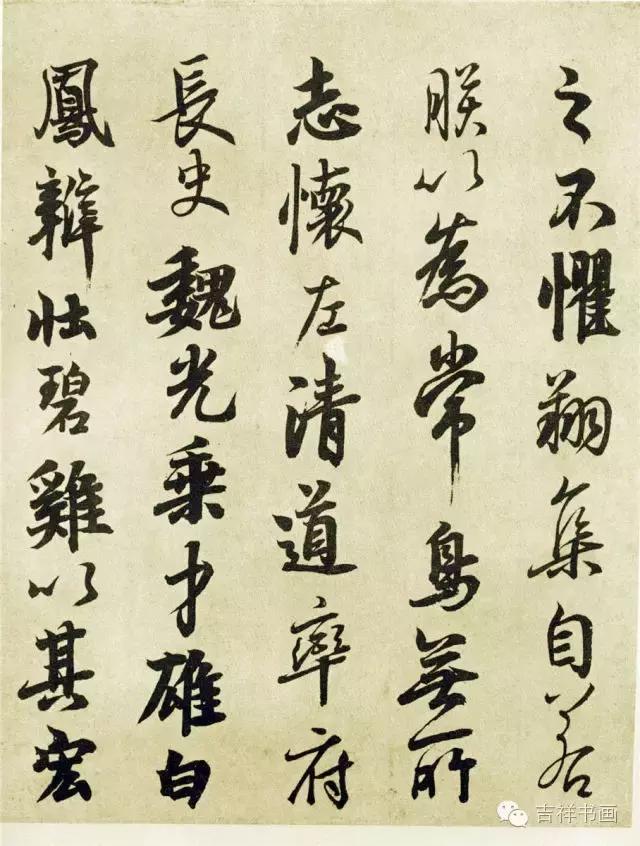 之不懼翔集自若
朕以為常鳥無所
志懷左清道率府
長史魏光乘才雄白
鳳辯壯碧雞以其宏
吉祥书画